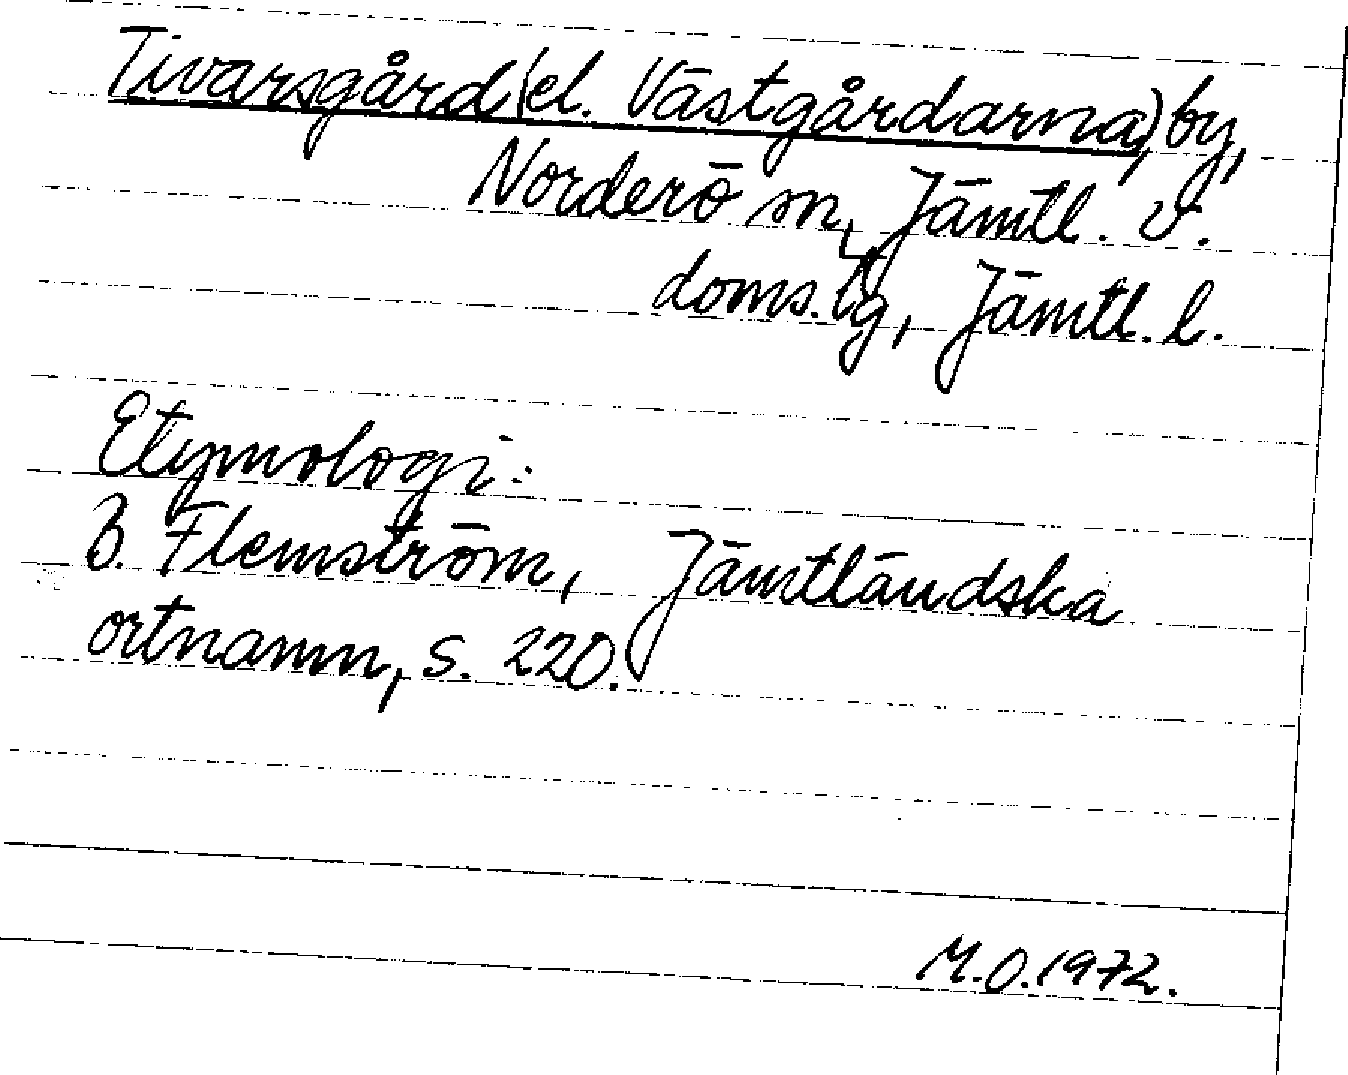 Tivarsgård (el. Västgårdarna), by,
Norderö sn, Jämtl. v.
doms.lg, Jämtl. l.
Etymologi:
B. Flemström, Jämtländska
ortnamn, s. 220.
M.O. 1972.